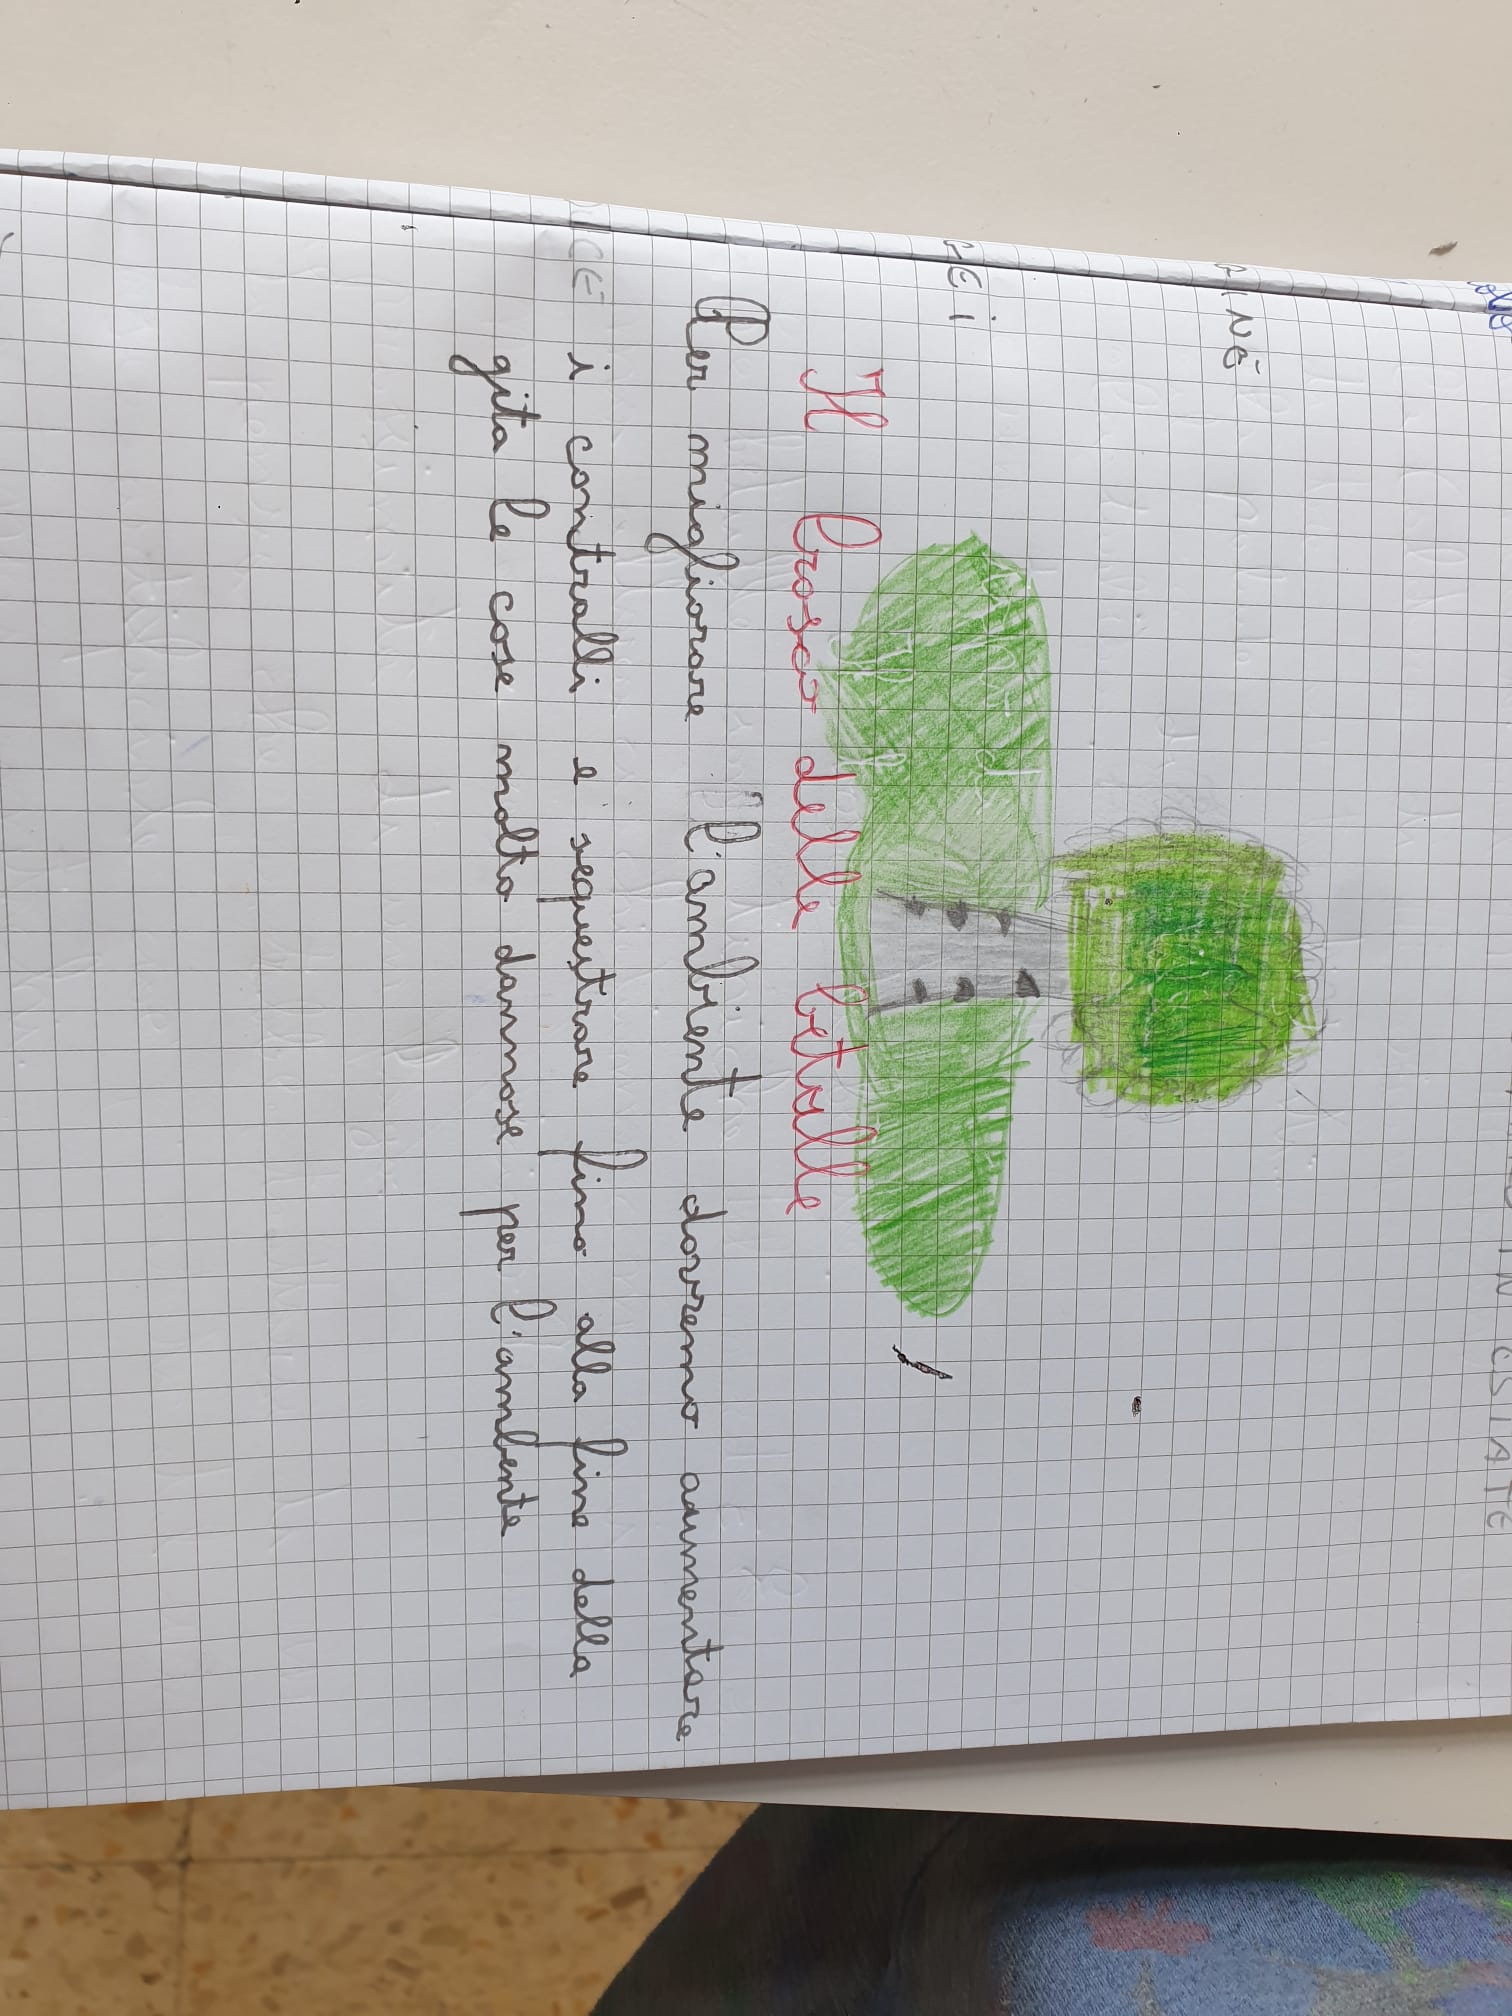 Il bosco delle betulle
Per migliorare l'ambiente dovremo aumentare
i contralli e sequestrare fino alla fine della
gita le cose molto dannose per l'ambente